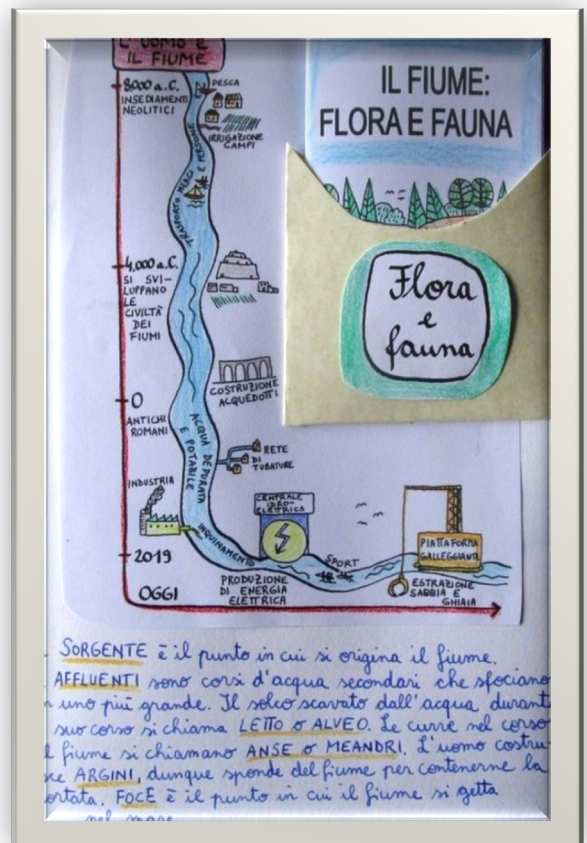 L'UOMO E
IL FIUME
8000 a.C.
INSEDIAMENTI
NEOLITICI
PESCA
IRRIGAZIONE
CAMPI
TRASPORTO MERCI E PERSONE
4.000 a.C.
SI SVI-
LUPPANO
LE
CIVILTÀ
DEI
FIUMI
COSTRUZIONE
ACQUEDOTTI
0
ANTICHI
ROMANI
ACQUA DEPURATA
E POTABILE
RETE
DI
TUBATURE
INDUSTRIA
INQUINAMENTO
CENTRALE
IDRO-
ELETTRICA
PRODUZIONE
DI ENERGIA
ELETTRICA
SPORT
PIATTAFORMA
GALLEGGIANTE
ESTRAZIONE
SABBIA E
GHIAIA
2019
OGGI
IL FIUME:
FLORA E FAUNA
Flora
e
fauna
SORGENTE è il punto in cui si origina il fiume.
AFFLUENTI sono corsi d'acqua secondari che sfociano
uno più grande. Il solco scavato dall'acqua durant
suo corso si chiama LETTO O ALVEO. Le curve nel corso
l fiume si chiamano ANSE O MEANDRI. L'uomo costru-
sce ARGINI, dunque sponde del fiume per contenerne la
ortata. FOCE è il punto in cui il fiume si getta
nel mare